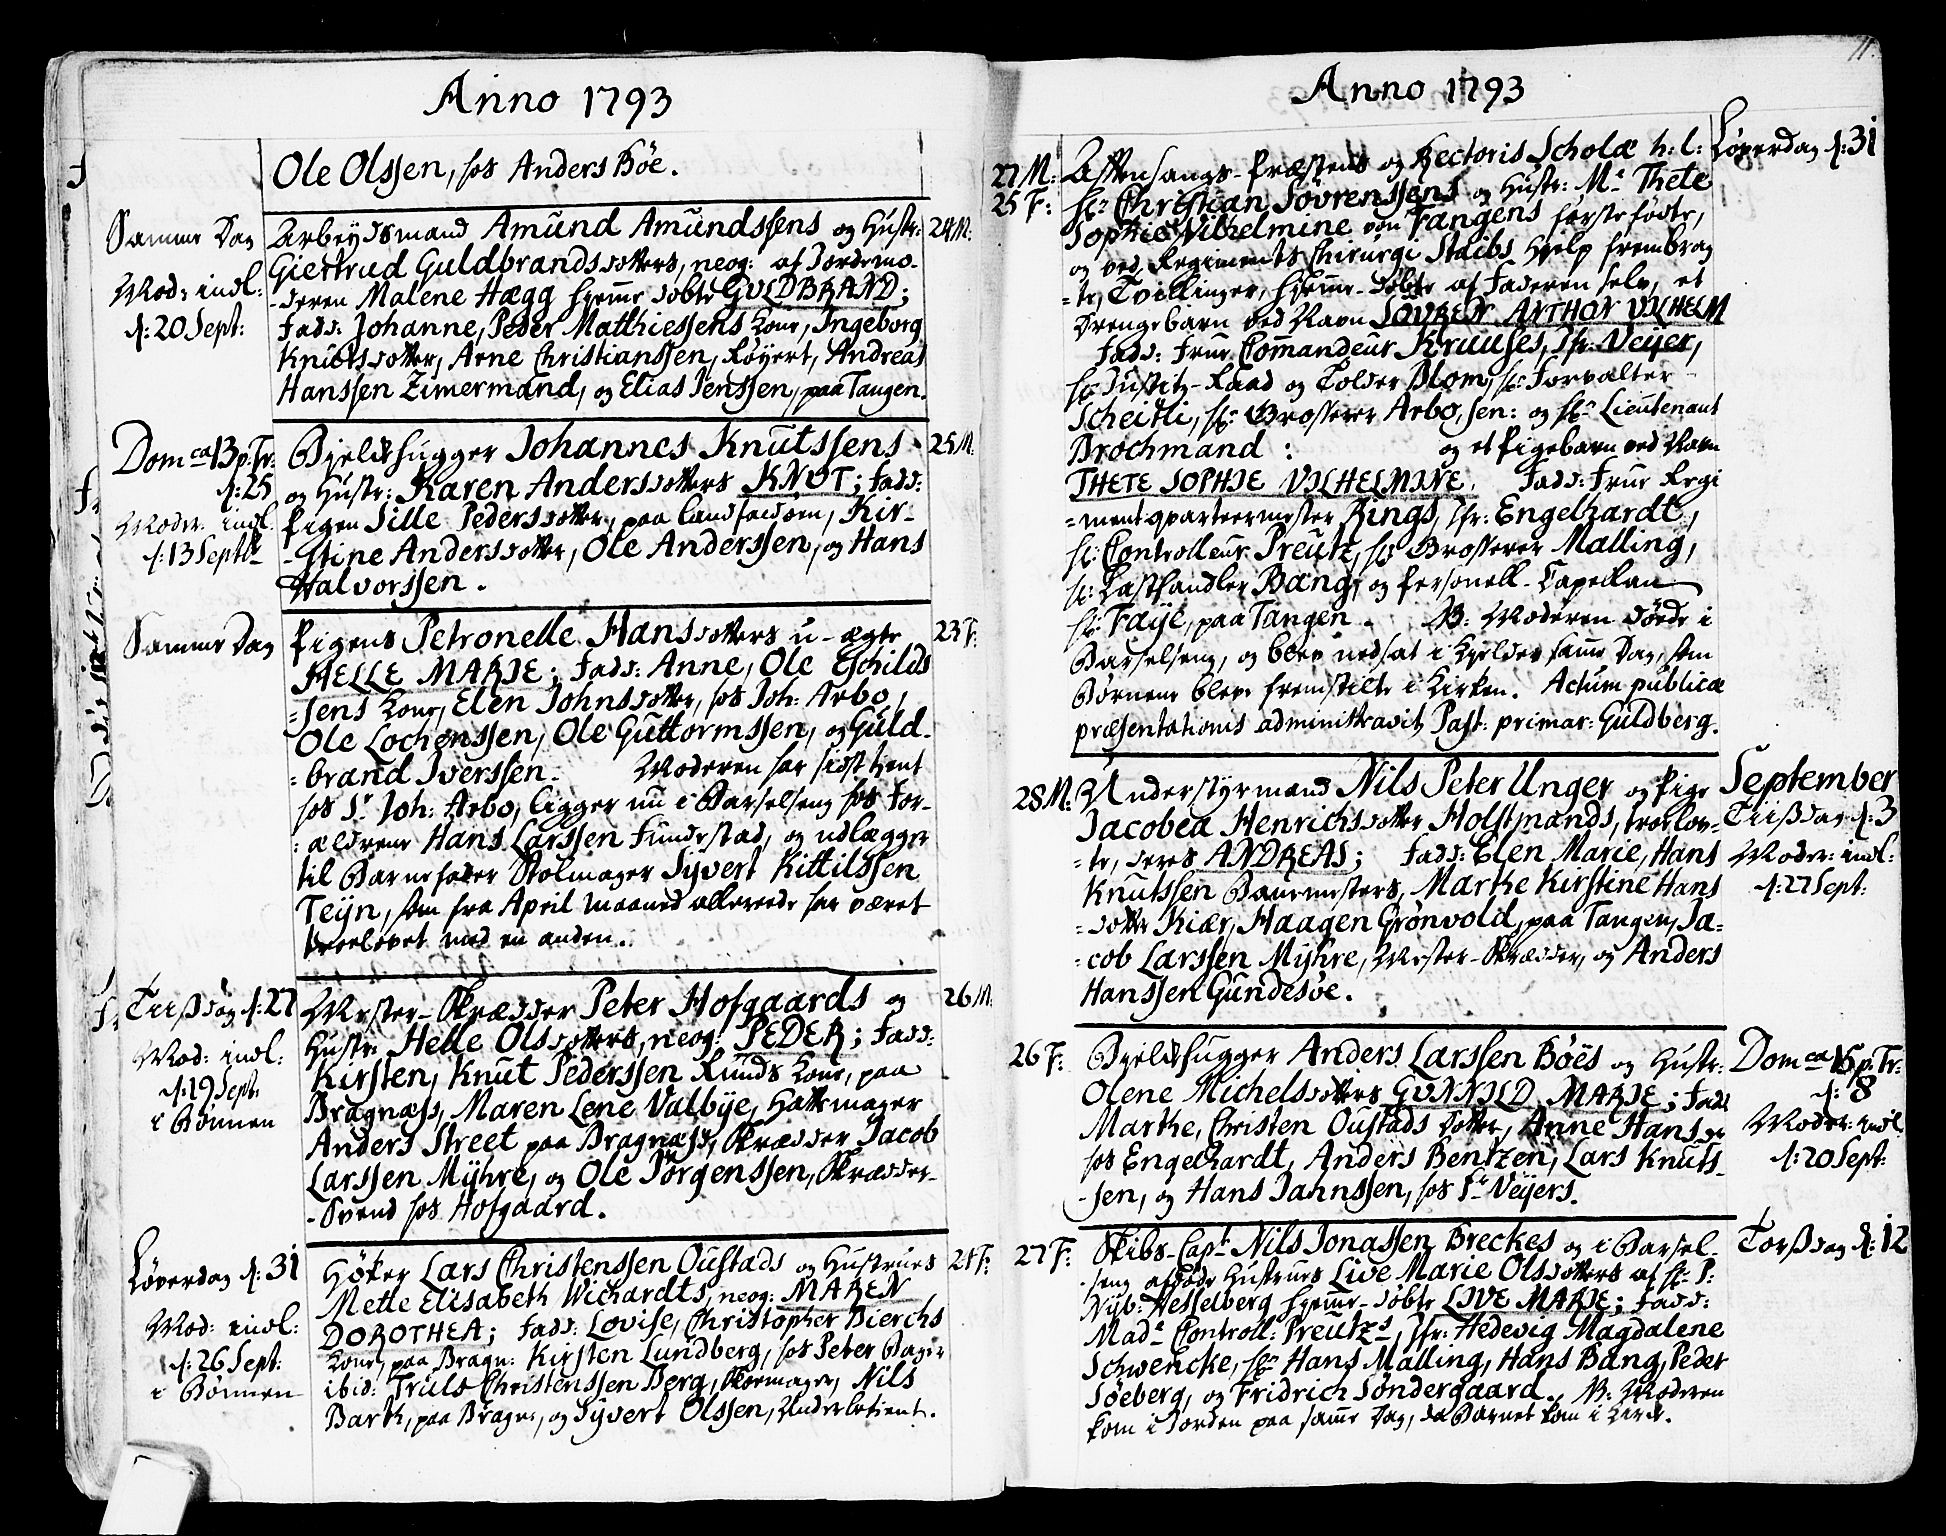 Anno 1793
Ole Olssen, hos Anders Böe.
Samme Dag
Mod: indl:
d: 20 Sept:
Arbeÿdsmand Amund Amundssens og Hustr: 24 M:
Giertrud Guldbrandsdotters, neog: af Jordemo-
-deren Malene Hægg hjemme døbte GULDBRAND;
Fadd: Johanne, Peder Matthiessens Kone, Ingeborg
Knutsdotter, Arne Christianssen, Røÿert, Andreas
Hanssen Zimermand, og Elias Jenssen, paa Tangen.
Dom ca 13 p. Tr:
d: 25
Moder: indl.
d: 13 Septb
Bjelkhugger Johannes Knutssens 25 M.
og Hustr: Karen Andersdotters KNUT; Fadd:
Pigen Sille Pedersdotter, paa Landfaldøen, Kir-
-stine Andersdotter, Ole Anderssen, og Hans
Halvorssen.
Samme Dag
Pigens Petronelle Hansdotters u-ægte 23 F:
HELLE MARIE; Fadd: Anne, Ole Eschilds
=sens Kone, Elen Johnsdotter, hos Joh: Arbo,
Ole Lochenssen, Ole Guttormssen, og Guld-
=brand Iverssen. Moderen har sidst tient
hos Sr Joh: Arbo, ligger nu i Barselseng hos For-
=ældrene Hans Larssen Funderstad, og udlægger
til Barnefader Stolmager Sÿvert Kittilssen
Teÿn, som fra April Maaned allereede har været
troelovet med en anden.
Tiisdag d: 27
Mod: indl:
d: 19 Sept:
i Bønnen
Mester-Skrædder Peter Hofgaards og 26 M:
Hustr: Helle Olsdotters, neog: PEDER; Fadd:
Kirsten, Knut Pederssen Runds Kone, paa
Bragnæss, Maren Lene Valbÿe, Hattemager
Anders Street paa Bragnæss, Skrædder Jacob
Larssen Mÿhre, og Ole Jørgenssen, Skrædder-
-Svend hos Hofgaard.
Løverdag d: 31
Mod: indl:
d: 26 Sept:
i Bønnen
Høker Lars Christenssen Oustads og Hustrues 24 F:
Mette Elisabeth Wichardts, neog: MAREN
DOROTHEA; Fadd: Lovise, Christopher Bierchs
Kone, paa Bragn: Kirsten Lundberg, hos Peter Bager
ibid: Truls Christenssen Berg, Skomager, Nils
Bark, paa Bragn:, og Sÿvert Olssen, Underbetient.
11.
Anno 1793
27 M:
25 F:
Afftensangs-Præstens og Rectoris Scholæ h: l: Løverdag d: 31
Hr Christian Sövrenssens og Hustr: Me Thete
Sophie Wilhelmine von Tangens første fødte,
og ved Regiments Chirurgi Staibs Hielp frembrag
=te, Tvillinger, hjemme-døbte af Faderen selv, et
Drengebarn ved Navn SÖVREN ANTHON VILHELM
Fadd: Frue Comandeur Kruuses, Jfr: Veÿer,
Hr: Justitz-Raad og Tolder Blom, Hr: Forvalter
Scheitli, Hr: Grosserer Arbo, sen: og Hr: Lieutenant
Brochmand : og et Pigebarn ved Navn
THETE SOPHIE VILHELMINE. Fadd: Frue Regi
=mentsqvarteermester Rings, Jfr: Engelhardt,
Hr: Controlleur Preutz, Hr: Grosserer Malling,
Hr: Lasthandler Bang, og Personell-Capellan
Hr: Faÿe, paa Tangen. NB: Moderen døde i
Barselseng, og blev nedsat i Kielder samme Dag, som
Børnene bleve fremstilte i Kirken. Actum publicæ
præsentationis administravit Past: primar: Guldberg.
September
Tiisdag d: 3
Moder: indl:
d: 27 Sept:
28 M: Understÿrmand Nils Peter Unger og Pige
Jacobea Henrichsdotter Holstmands, troelov=
=te, deres ANDREAS; Fadd: Elen Marie, Hans
Knutssen Baumesters, Marthe Kirstine Hans
=dotter Kiær, Haagen Grönvold, paa Tangen, Ja=
=cob Larssen Mÿhre, Mester-Skrædder, og Anders
Hanssen Gundesöe.
Dom ca 15 p: Tr:
d: 8
Moder: indl.
d: 20 Sept:
26 F: Bjelkhugger Anders Larssen Böes og Hustr:
Olene Michelsdotters GUNNILD MARIE; Fadd
Marthe, Christen Oustads Dotter, Anne Hansdr
hos Engelhardt, Anders Bentzen, Lars Knuts-
-sen, og Hans Jahnssen, hos Sr Veÿers.
Torsdag d: 12
27 F: Skibs-Capt: Nils Jonassen Breckes og i Barsel-
-seng afdøde Hustrues Live Marie Olsdotters af Hr: P:
Nÿb: Hesselberg hjemme-døbte LIVE MARIE; Fadd:
Made Controll: Preutzs, Jfr: Hedevig Magdalene
Schwencke, Hr Hans Malling, Hans Bang, Peder
Söeberg, og Fridrich Söndergaard. NB: Moderen
kom i Jorden paa samme Dag, da Barnet kom i Kirke.